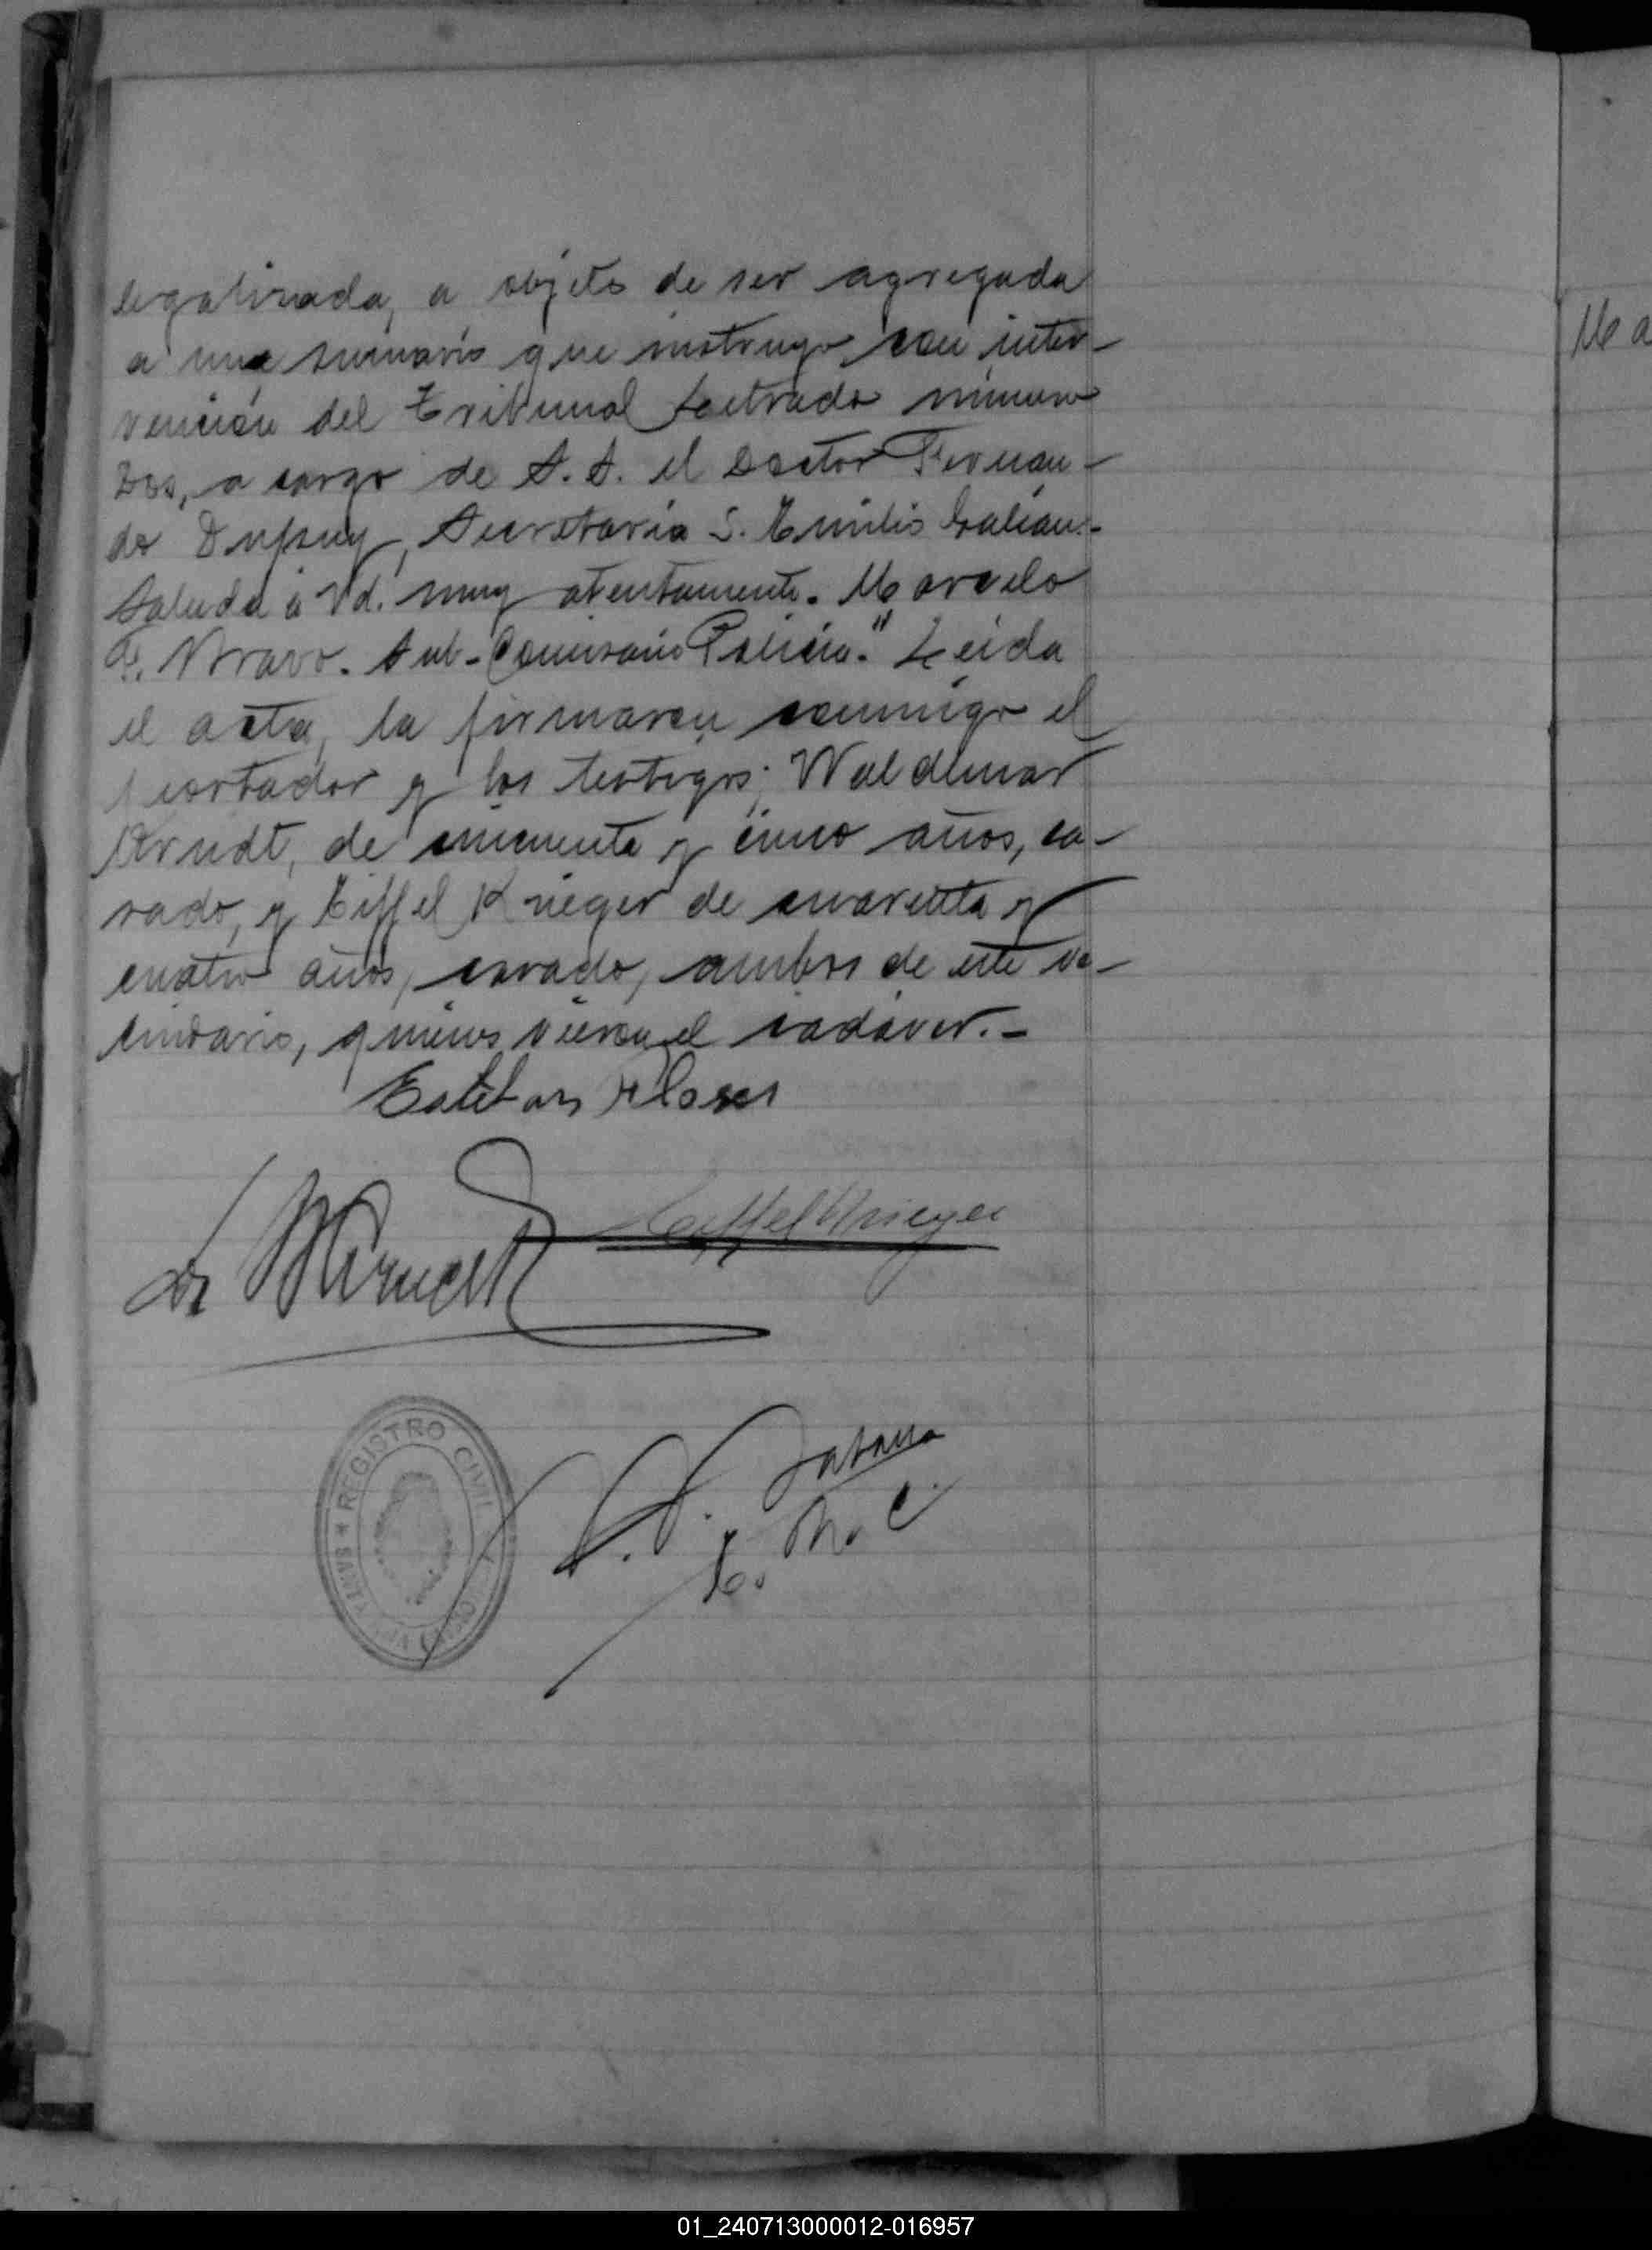 legalizada, a objeto de ser agregada
a una sumario que instruyo con inter-
vención del Tribunal Letrado número
Dos, a cargo de S.S. el Doctor Fernan-
do Dupuy, Secretaría S. Emilio Galian.-
Saluda a Vd. muy atentamente. Marcelo
F. Bravo. Sub-Comisario Policia." Leida
el acta, la firmaron conmigo el
portador y los testigos; Waldemar
Arndt, de cincuenta y cinco años, ca-
sado, y Eiffel Krieger de cuarenta y
cuatro años, casado, ambos de este ve-
cindario, quienes vieron el cadáver.-
Esteban Flores
Eiffel Krieger
E. R. C.
REGISTRO CIVIL
Ma
01_240713000012-016957